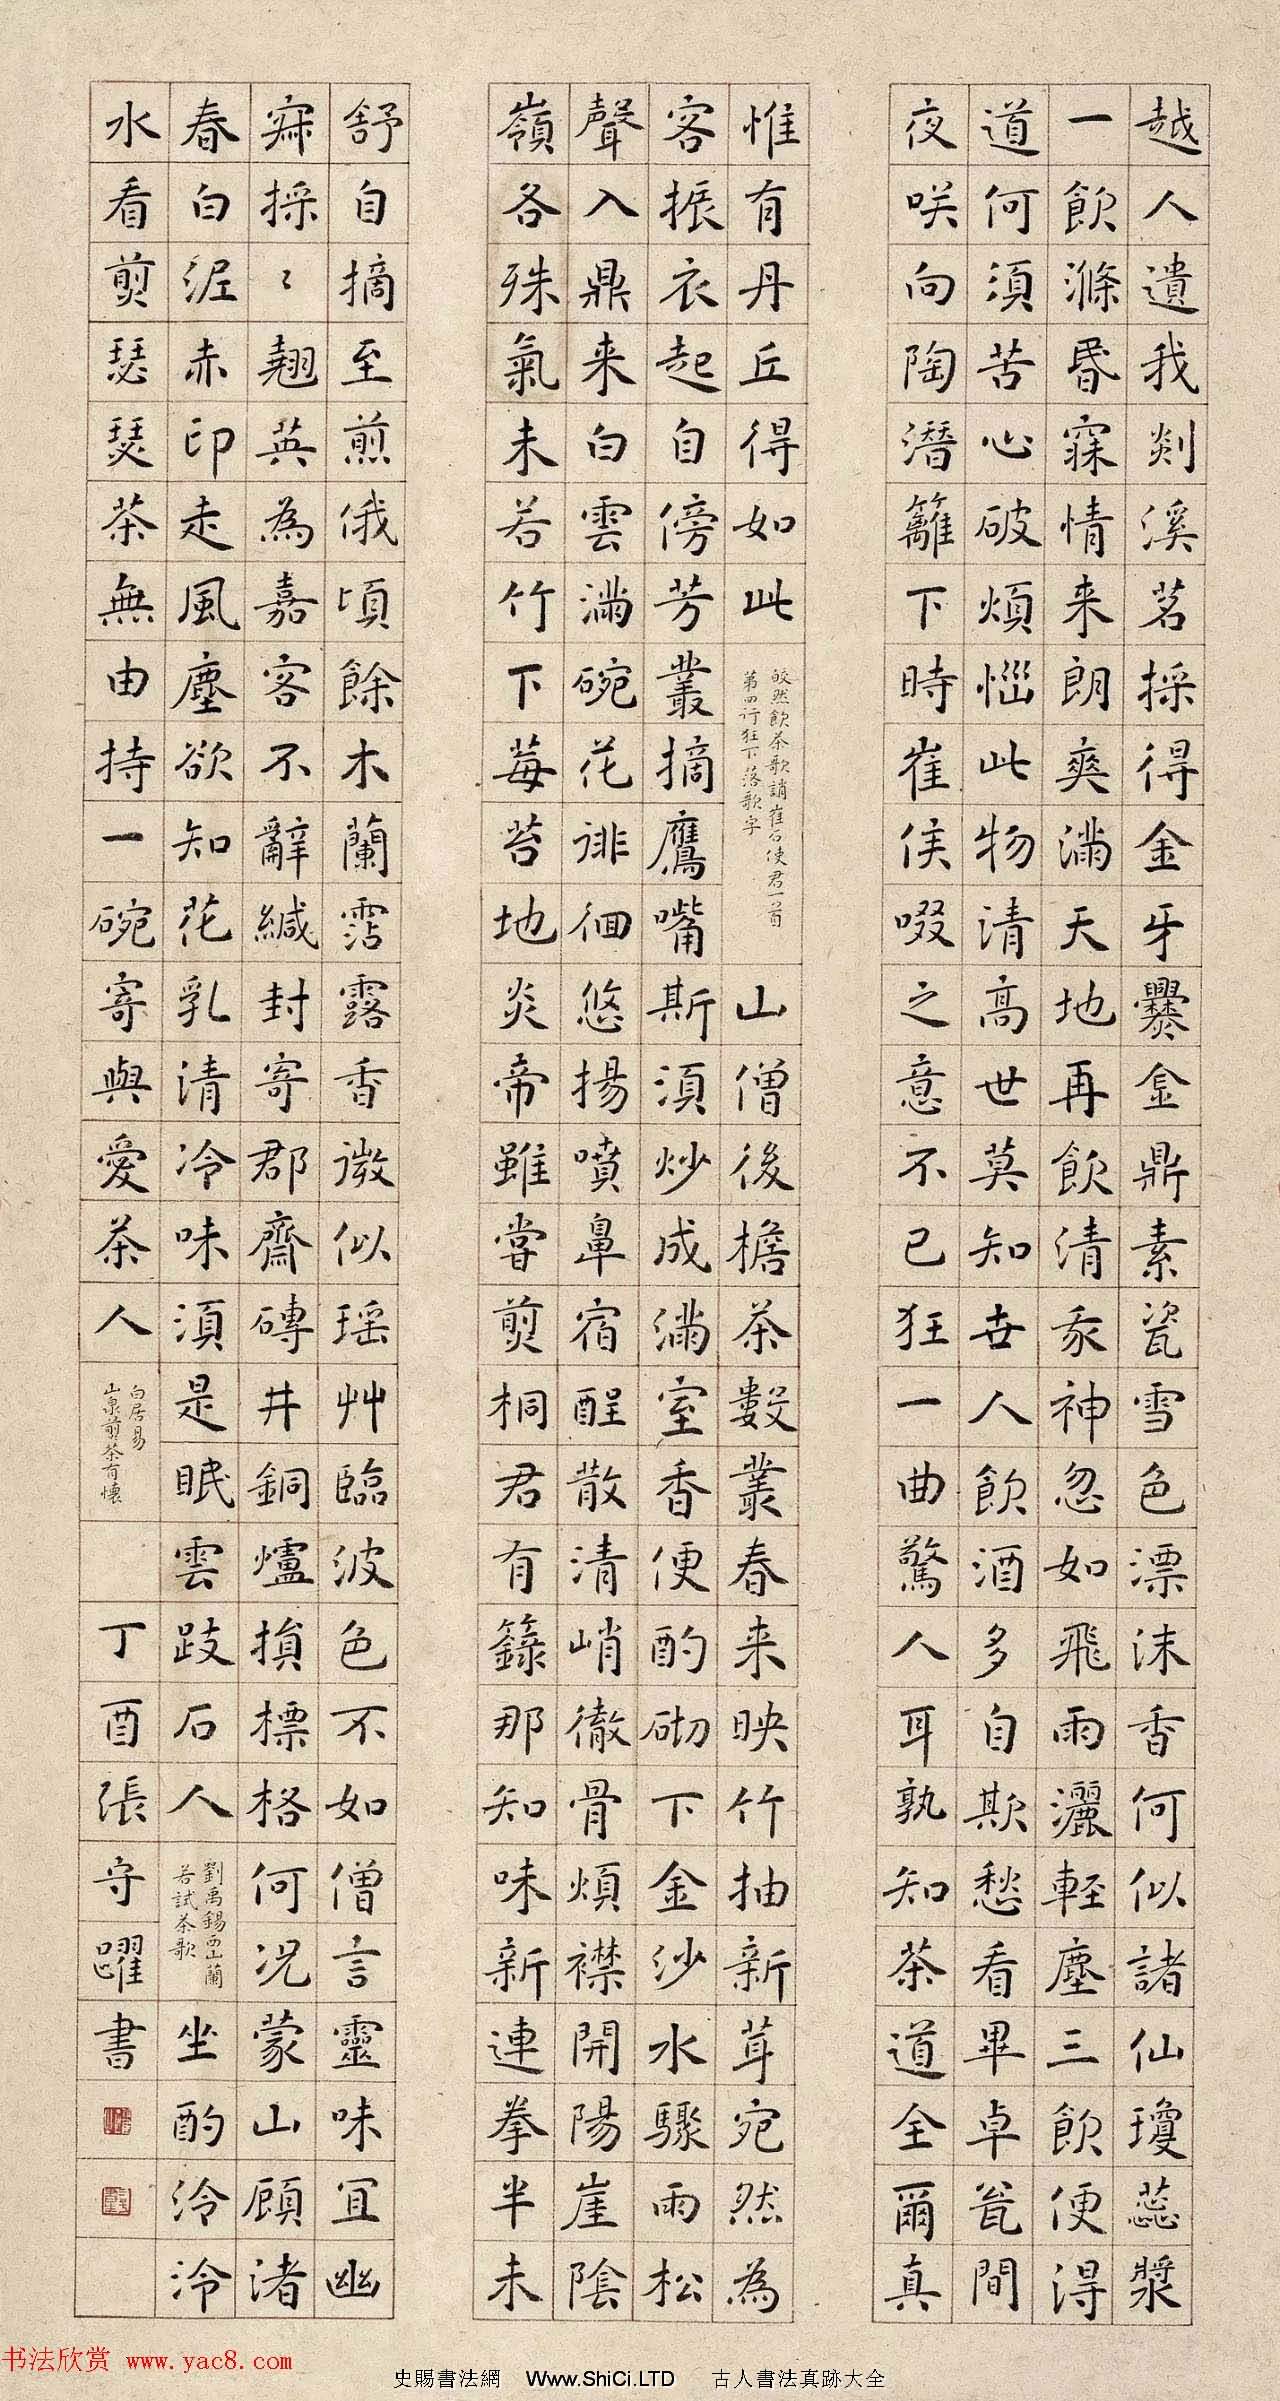 越人遺我剡溪茗採得金牙爨金鼎素瓷雪色漂沫香何似諸仙瓊蕊漿
一飲滌昏寐情来朗爽滿天地再飲清我神忽如飛雨灑輕塵三飲便得
道何須苦心破煩惱此物清高世莫知世人飲酒多自欺愁看畢卓瓮間
夜咲向陶潛籬下時崔侯啜之意不已狂一曲驚人耳孰知茶道全爾真
惟有丹丘得如此
皎然飲茶歌誚崔石使君一首
第四行狂下落歌字
山僧後檐茶數叢春来映竹抽新茸宛然為
客振衣起自傍芳叢摘鷹嘴斯須炒成滿室香便酌砌下金沙水驟雨松
聲入鼎来白雲滿碗花徘徊悠揚噴鼻宿酲散清峭徹骨煩襟開陽崖陰
嶺各殊氣未若竹下莓苔地炎帝雖嘗煎桐君有籙那知味新連拳半未
舒自摘至煎俄頃餘木蘭霑露香微似瑤艸臨波色不如僧言靈味宜幽
寂採〻翹英為嘉客不辭緘封寄郡齋磚井銅爐損標格何況蒙山顧渚
春白泥赤印走風塵欲知花乳清泠味須是眠雲跂石人
劉禹錫西山蘭
若試茶歌
坐酌泠泠
水看煎瑟瑟茶無由持一碗寄與愛茶人
白居易
山泉煎茶有懷
丁酉張守躍書
书法欣赏 www.yac8.com
史賜書法網 Www.ShiCi.LTD 古人書法真跡大全